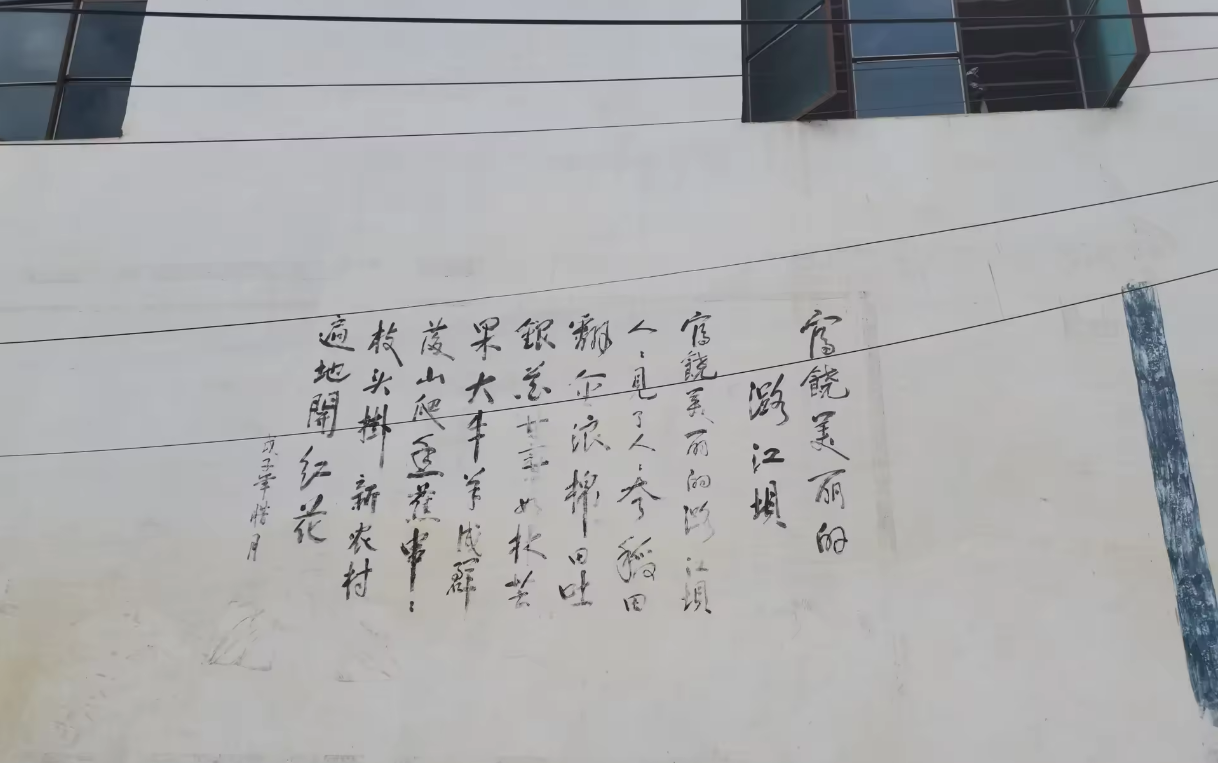 富饶美丽的
潞江坝
富饶美丽的潞江坝
人々見了人々夸稻田
翻金浪棉田吐
銀花甘蔗如林芒
果大牛羊成群
山爬香蕉串々
枝头掛新农村
遍地開红花
年腊月